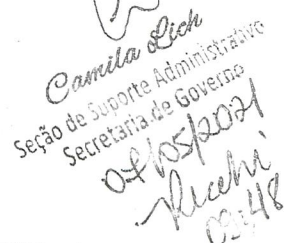 Camila Lich
Seção de Suporte Administrativo
Secretaria de Governo
07/05/2021
Recebi
09:48